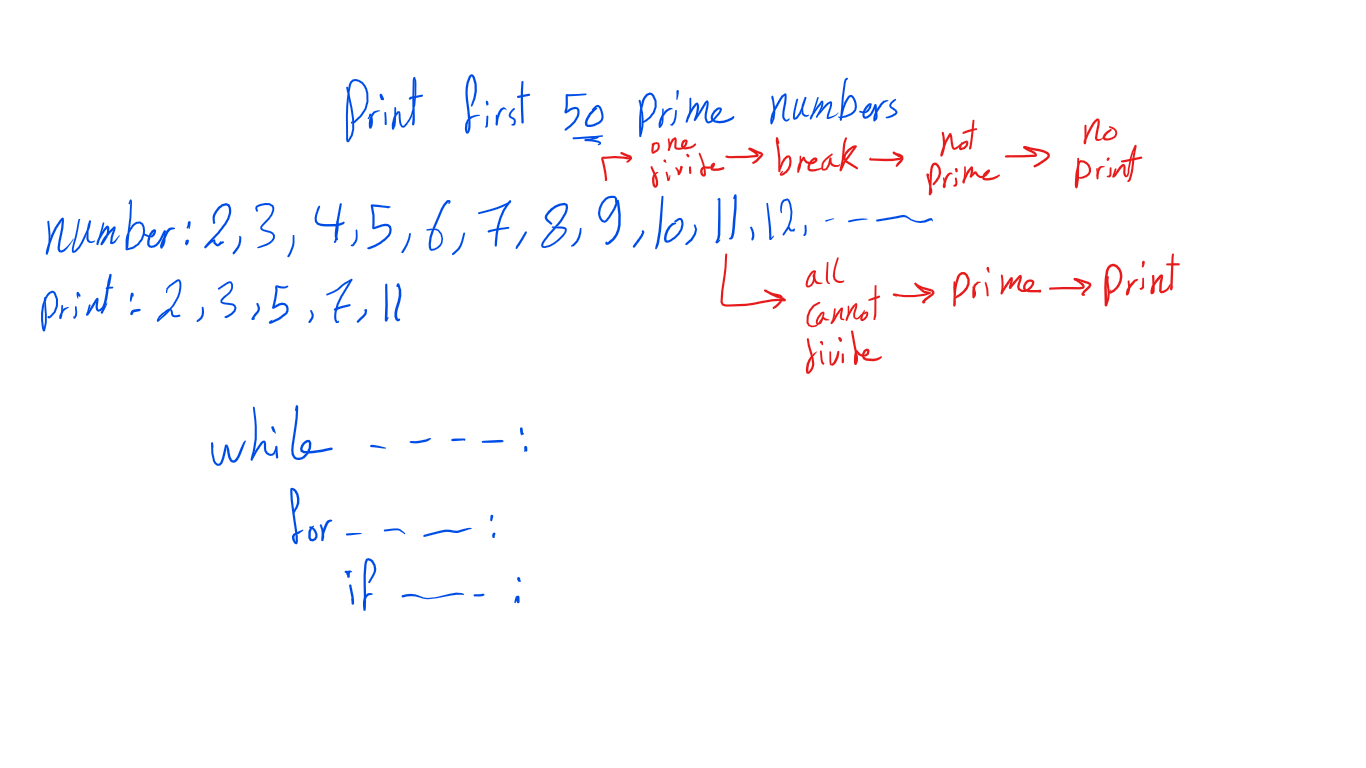 Print first 50 prime numbers
one divide → break → not prime → no print
number: 2, 3, 4, 5, 6, 7, 8, 9, 10, 11, 12, - - - -
print: 2, 3, 5, 7, 11
all cannot divide → prime → print
while - - - - :
for - - - :
if - - :